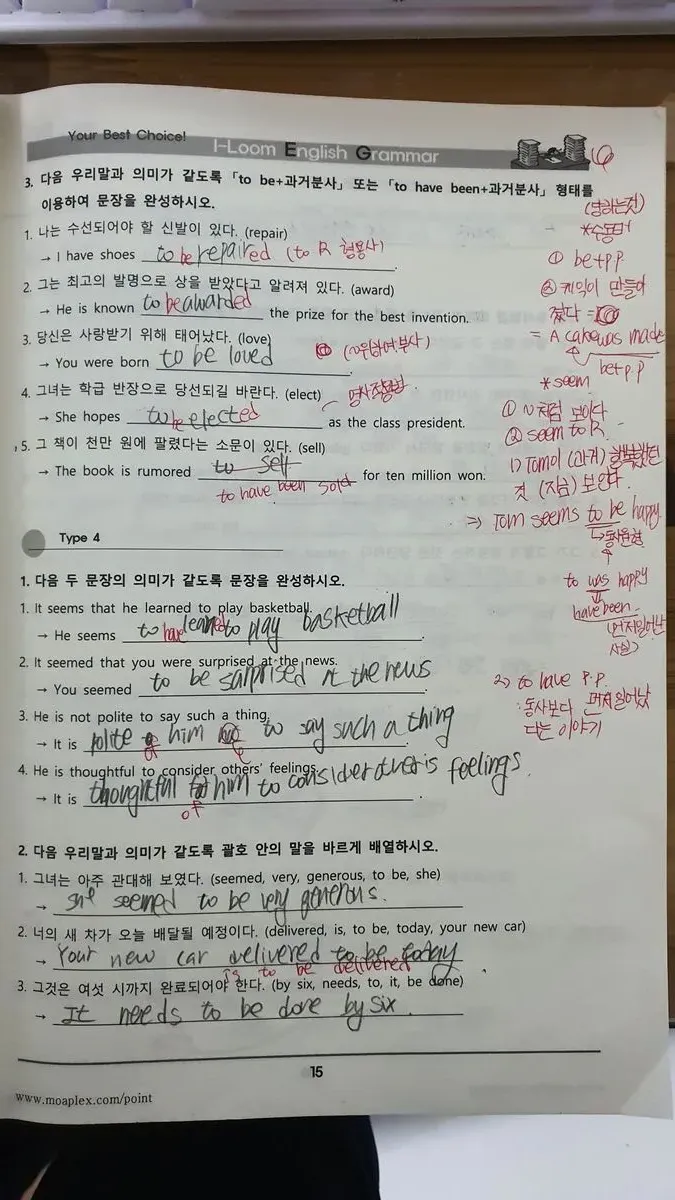 Your Best Choice!
I-Loom English Grammar
3. 다음 우리말과 의미가 같도록 「to be+과거분사」 또는 「to have been+과거분사」 형태를
이용하여 문장을 완성하시오.
1. 나는 수선되어야 할 신발이 있다. (repair)
→ I have shoes to be repaired (to R 형용사) .
2. 그는 최고의 발명으로 상을 받았다고 알려져 있다. (award)
→ He is known to be awarded the prize for the best invention.
3. 당신은 사랑받기 위해 태어났다. (love)
→ You were born to be loved .
4. 그녀는 학급 반장으로 당선되길 바란다. (elect)
→ She hopes to be elected as the class president.
5. 그 책이 천만 원에 팔렸다는 소문이 있다. (sell)
→ The book is rumored to sell for ten million won.
to have been sold
Type 4
1. 다음 두 문장의 의미가 같도록 문장을 완성하시오.
1. It seems that he learned to play basketball.
→ He seems to have learned to play basketball .
2. It seemed that you were surprised at the news.
→ You seemed to be surprised at the news .
3. He is not polite to say such a thing.
→ It is polite of him to say such a thing .
4. He is thoughtful to consider others' feelings.
→ It is thoughtful him to consider feelings .
of
2. 다음 우리말과 의미가 같도록 괄호 안의 말을 바르게 배열하시오.
1. 그녀는 아주 관대해 보였다. (seemed, very, generous, to be, she)
→ she seemed to be very generous.
2. 너의 새 차가 오늘 배달될 예정이다. (delivered, is, to be, today, your new car)
→ Your new car delivered to be today .
is to be delivered
3. 그것은 여섯 시까지 완료되어야 한다. (by six, needs, to, it, be done)
→ It needs to be done by six .
15
www.moaplex.com/point
(당하는것)
*수동태
① be+p.p
② 케익이 만들어
졌다 =
= A cake was made
be+p.p
*seem
① ~처럼 보이다
② seem to R
1) Tom이 (과거) 행복했던
것 (지금) 보인다.
⇒ Tom seems to be happy
→동사원형
to was happy
have been
(먼저일어난
사실)
2) to have p.p.
: 동사보다 먼저일어났
다는 이야기